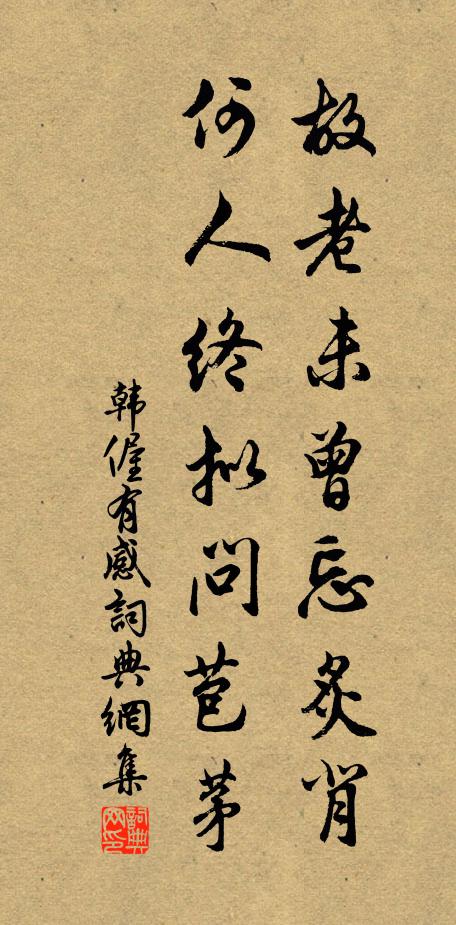 故老未曾忘炙背
何人终拟问苞茅
韩偓有感词典網集
詞典网印